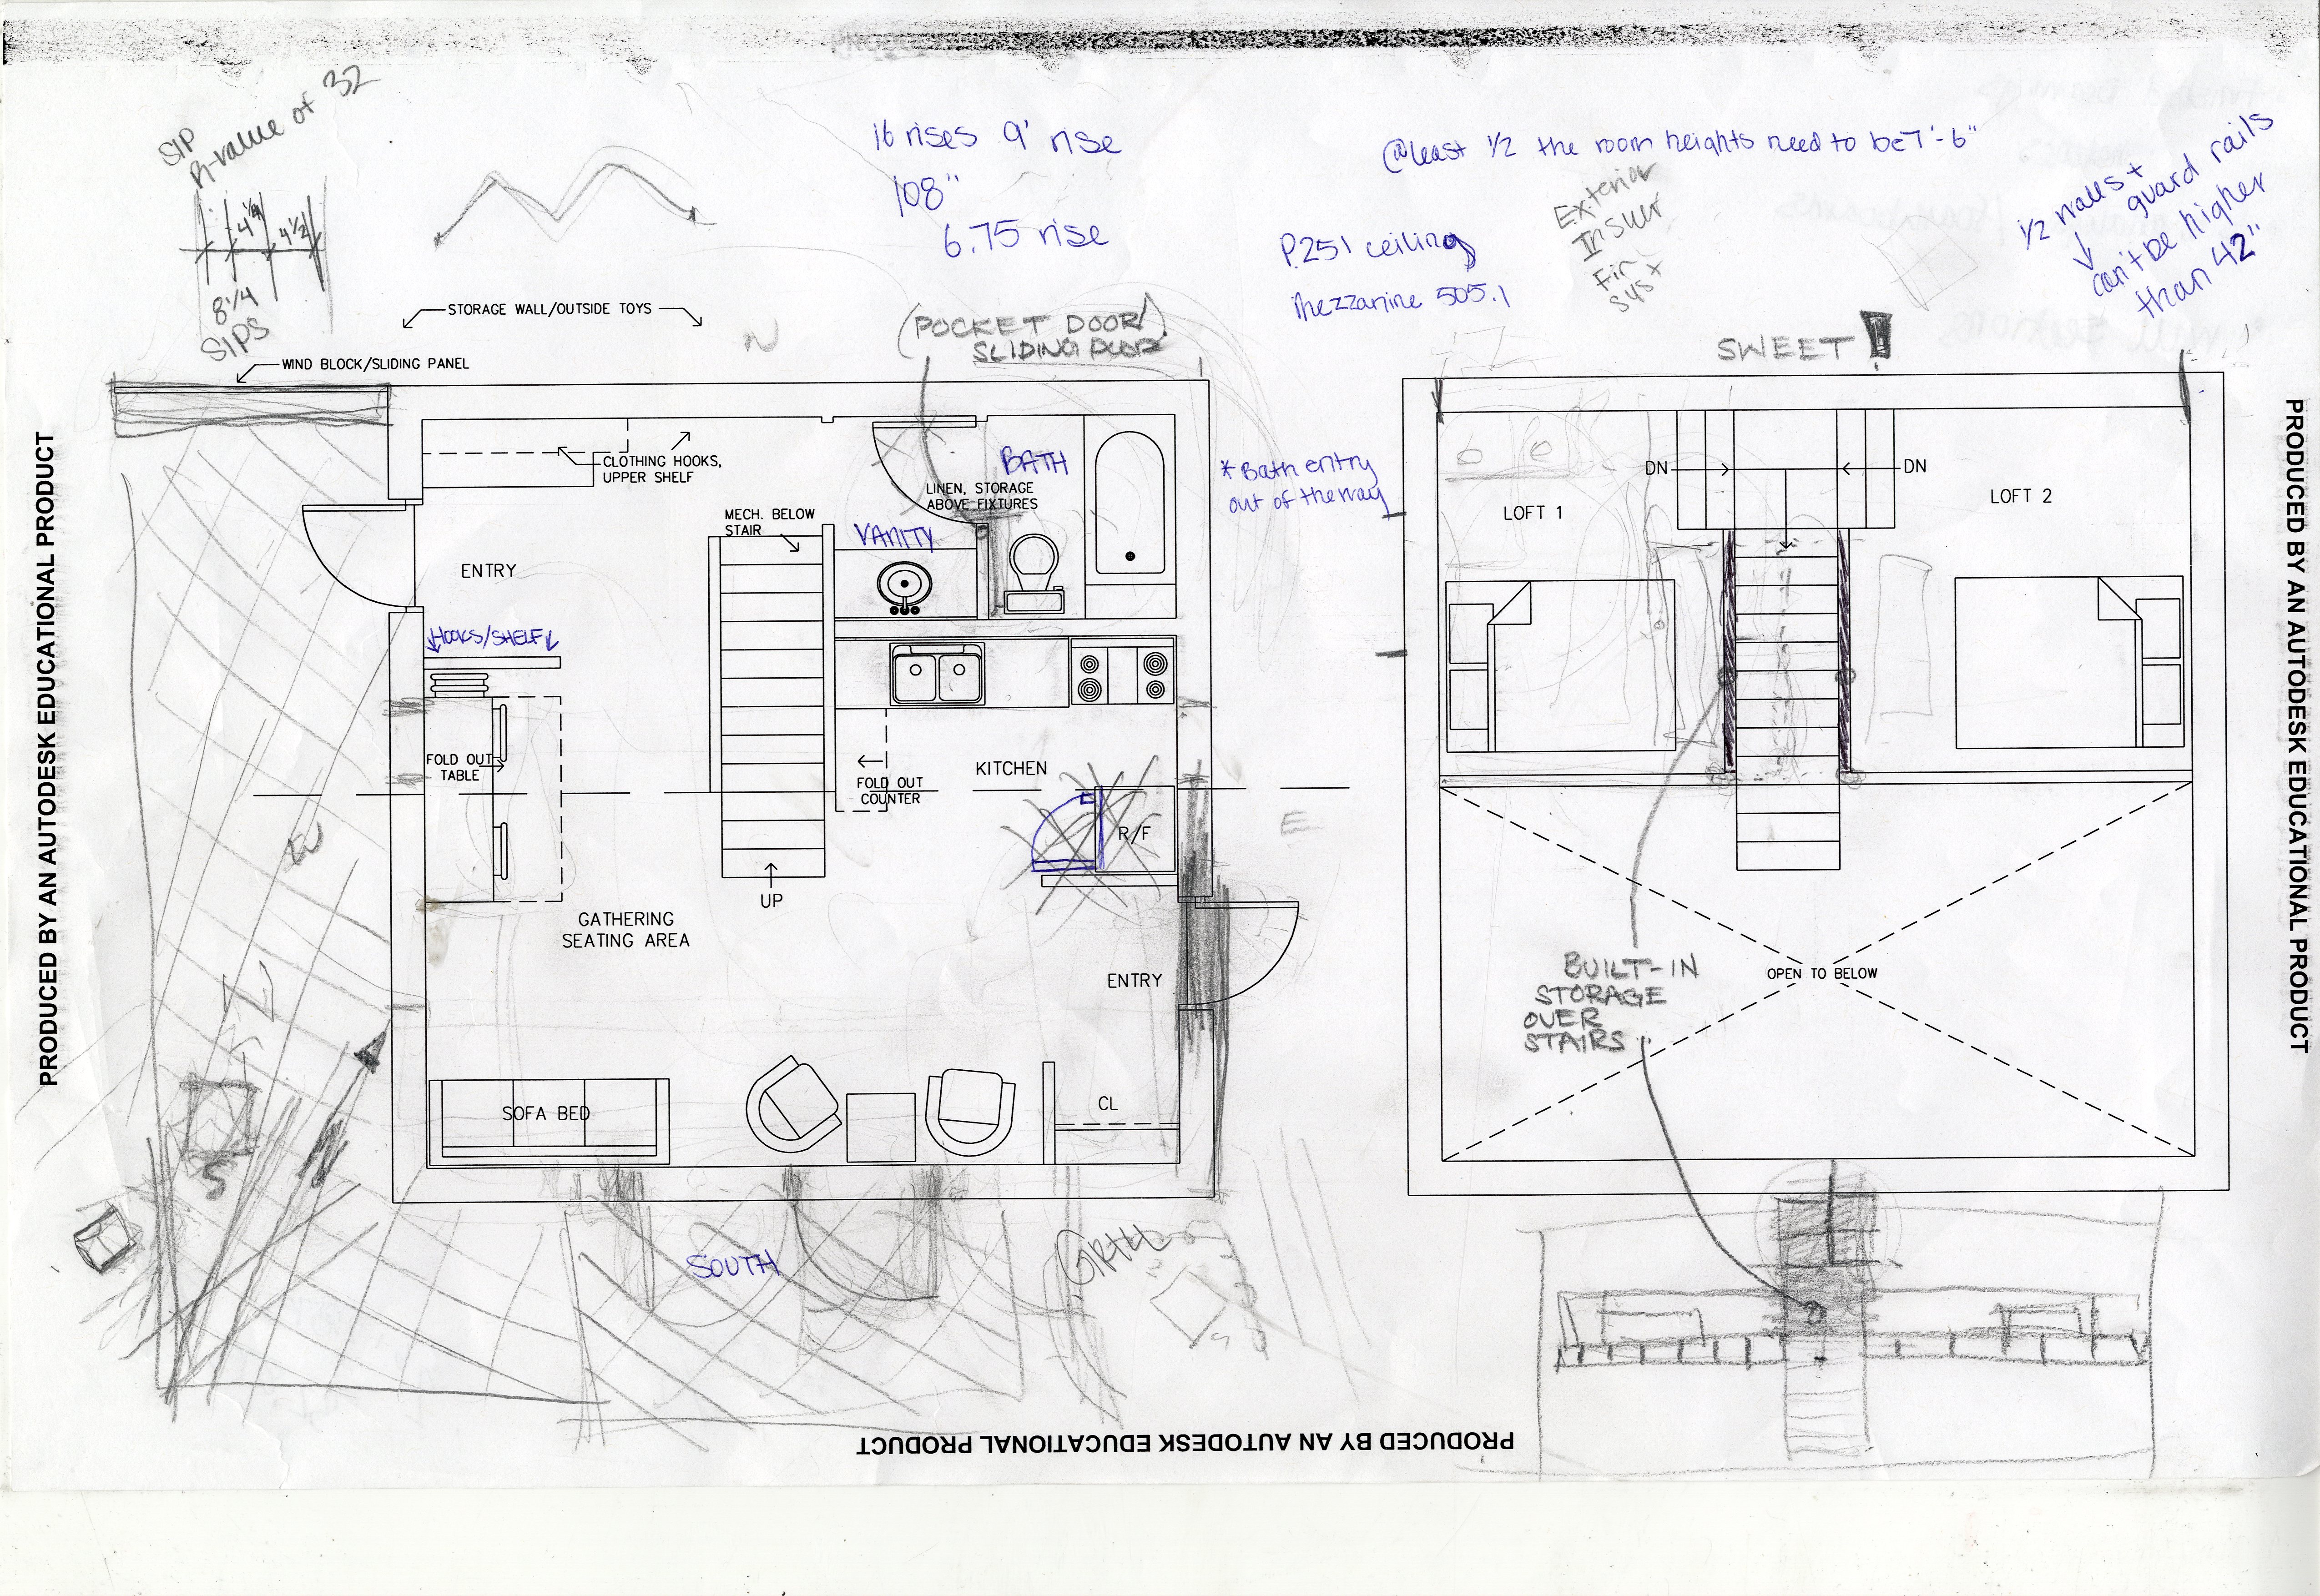 SIP
R-value of 32
4 1/4
4 1/2
8 1/4
SIPS
16 rises 9' rise
108"
6.75 rise
@least 1/2 the room heights need to be 7'-6"
P.251 ceiling
Mezzanine 505.1
Exterior
Insul
Fin
syst
1/2 walls +
guard rails
can't be higher
than 42"
STORAGE WALL/OUTSIDE TOYS
WIND BLOCK/SLIDING PANEL
N
(POCKET DOOR/)
SLIDING DOOR
SWEET!
CLOTHING HOOKS,
UPPER SHELF
BATH
LINEN, STORAGE
ABOVE FIXTURES
* Bath entry
out of the way
MECH. BELOW
STAIR
VANITY
ENTRY
HOOKS/SHELF
FOLD OUT
TABLE
FOLD OUT
COUNTER
KITCHEN
R/F
E
W
UP
GATHERING
SEATING AREA
ENTRY
SOFA BED
CL
SOUTH
GRILL
DN
DN
LOFT 1
LOFT 2
OPEN TO BELOW
BUILT-IN
STORAGE
OVER
STAIRS
PRODUCED BY AN AUTODESK EDUCATIONAL PRODUCT
PRODUCED BY AN AUTODESK EDUCATIONAL PRODUCT
PRODUCED BY AN AUTODESK EDUCATIONAL PRODUCT